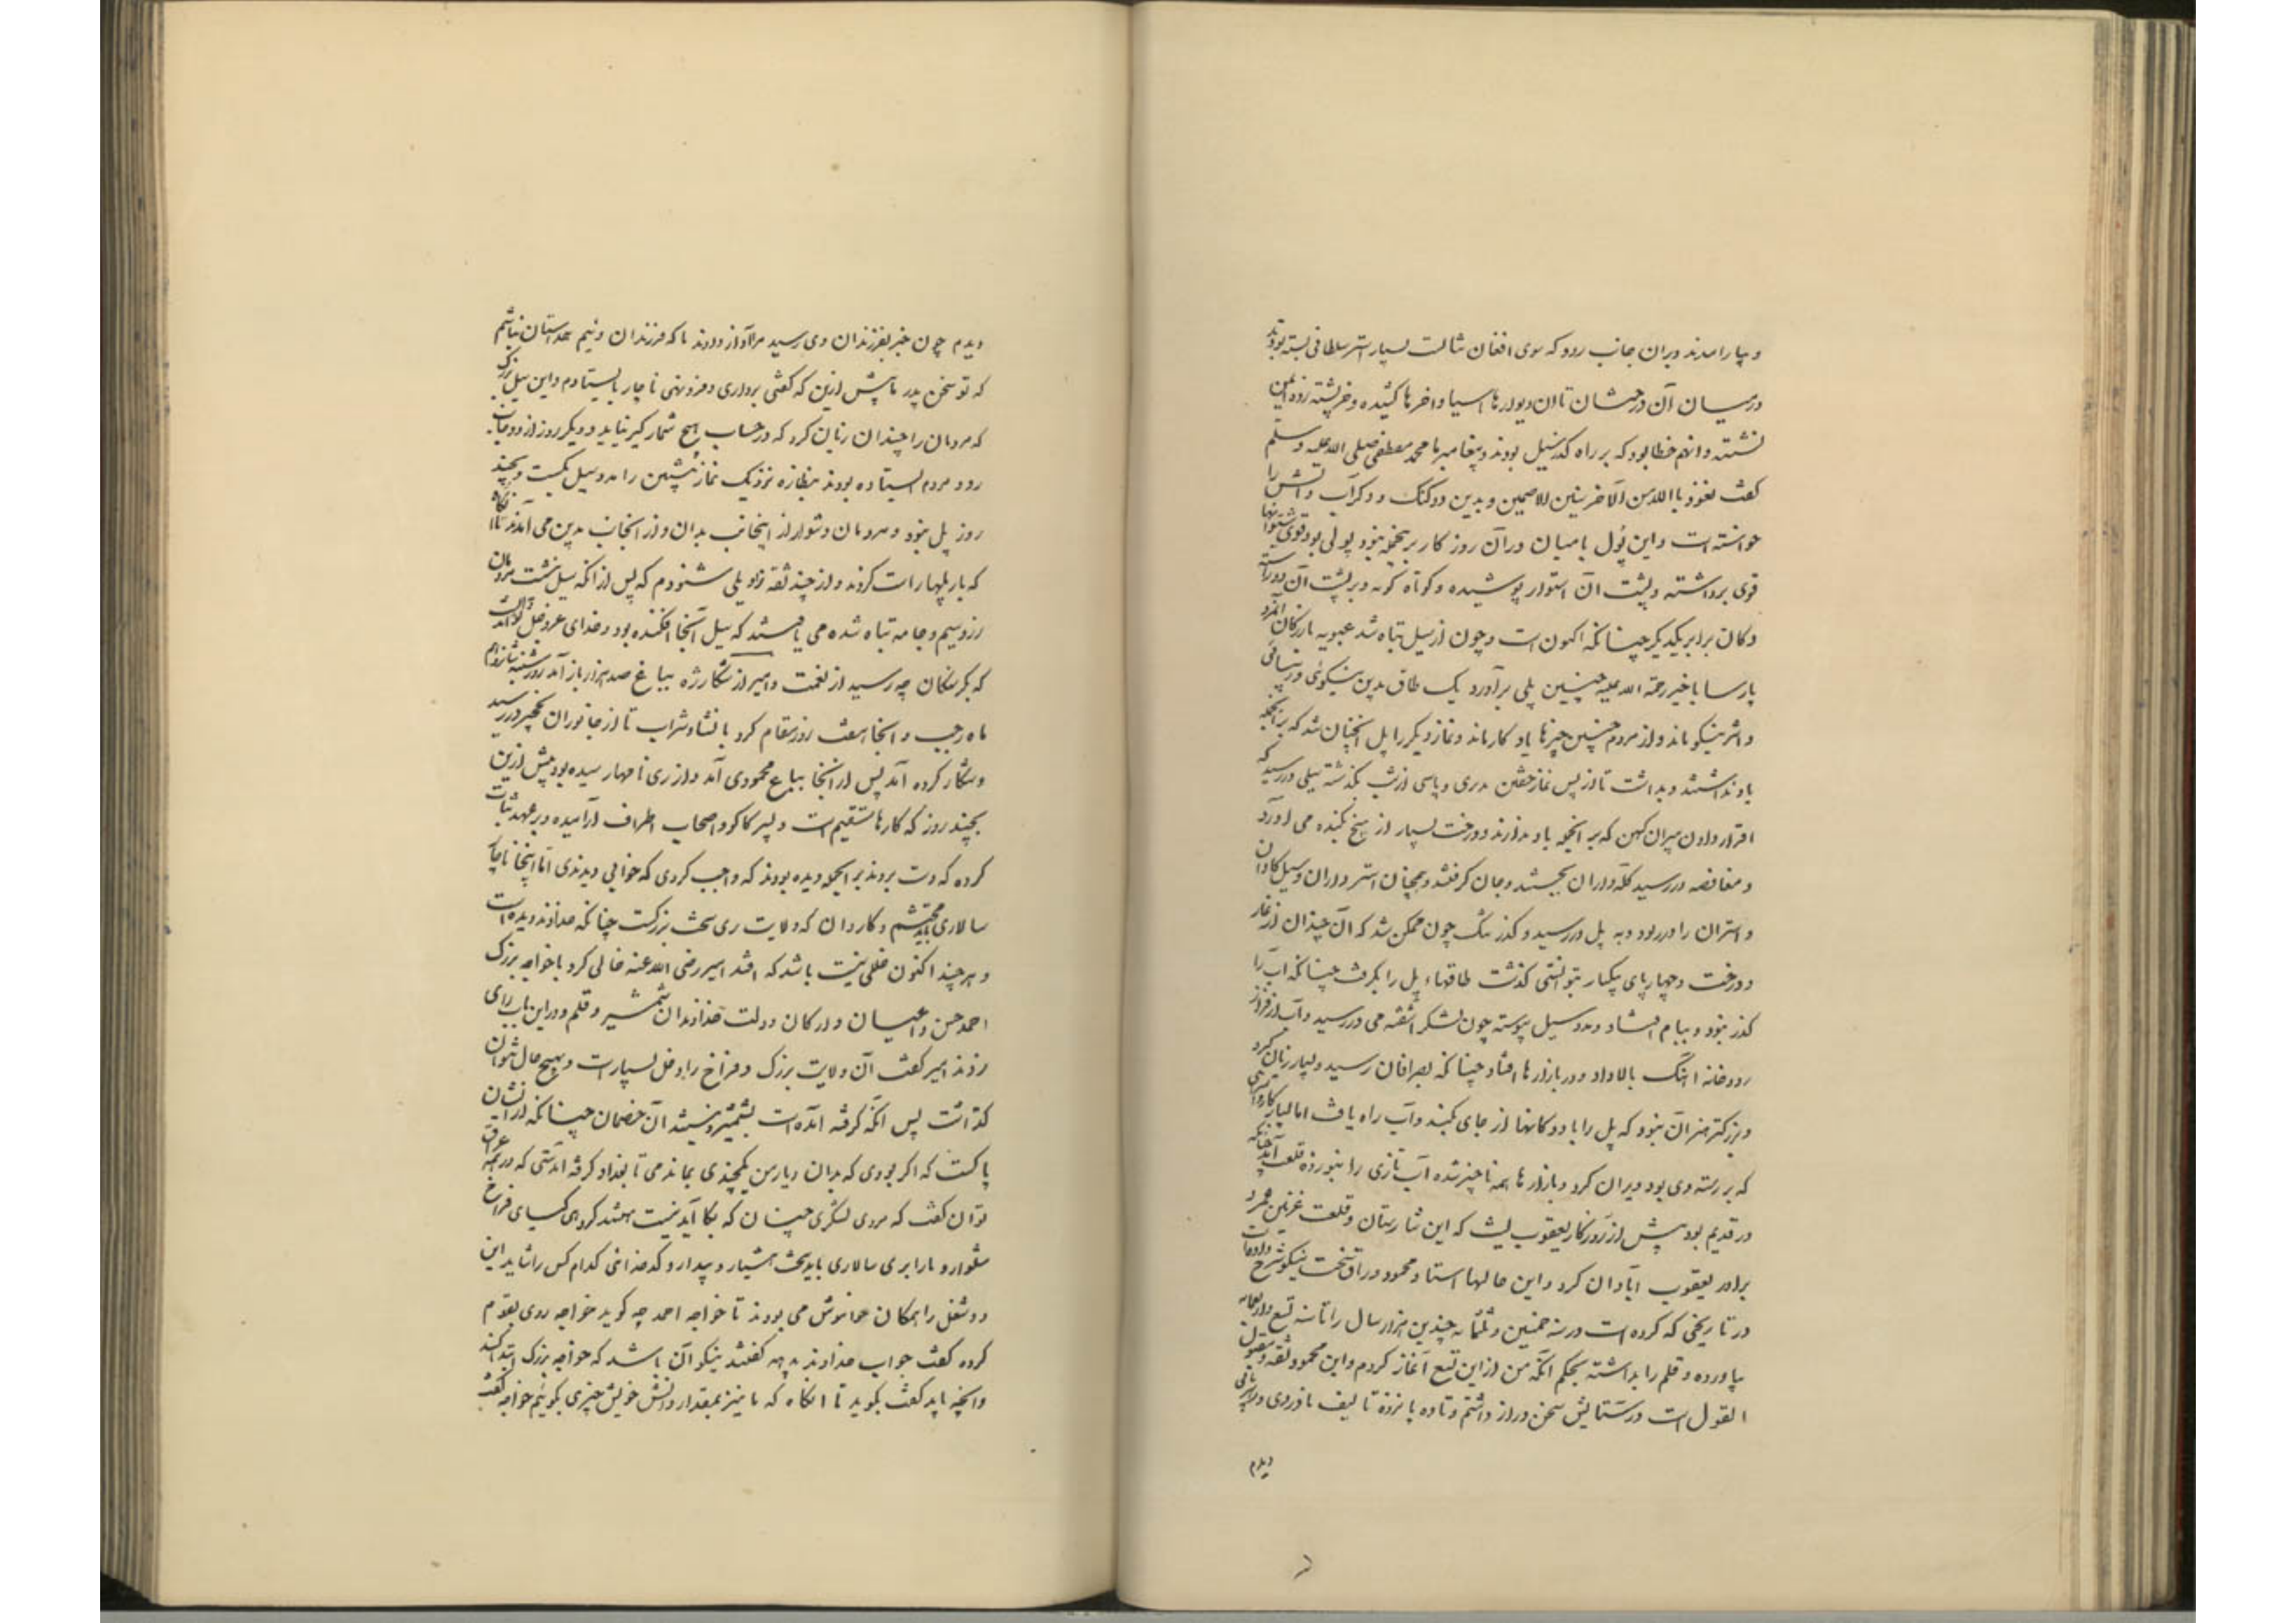 و بیارامدند و بران جانب رود که سوی افغان شالست بسیار استر سلطانی بسته بودند
درمیان آن درختان تاان دیوارها اسیا و اخرها کشیده و خرپشته زده ایمن
نشسته و انهم خطا بود که بر راه گذر سیل بودند و پیغامبر ما محمد مصطفی صلی الله علیه و سلم
کفت نعوذ باالله من الاخرسین الاصمین و بدین دو کنک و دو کر آب و آتش را
خواسته است و این پُول بامیان در آن روز کار بر نجمله نبود پولی بود قوی ستونها
قوی برداشته و پشت ان استوار پوشیده و کوتاه کونه و بر پشت آن دو رسته
دکان برابر یکدیکر چنانکه اکنون است و چون از سیل تباه شد عبویه بازرکان آنمرد
پارسا با خیر رحمة الله علیه چنین پلی برآورد یک طاق بدین نیکوئی و زیبائی
و اثر نیکو ماند و از مردم چنین چیزها یاد کار ماند و نماز دیکر را پل انچنان شد که بر انجمله
یاد نداشتند و بداشت تا از پس نماز خفتن بدیری و پاسی از شب بگذشته سیلی دررسید که
اقرار دادن پیران کهن که بر انجمله یاد ندارند و درخت بسیار از بیخ بکنده می آورد
و مغافصه دررسید کله‌داران بجستند و جان کرفتند و همچنان استر داران و سیل کاوان
و استران را در ربود و به پل در رسید و گذر تنک چون ممکن شد که آن چندان از غار
و درخت و چهارپای یکبار بتوانستی کذشت طاقهاء پل را بکرفت چنانکه آب را
کذر نبود و ببام افتاد و مدد سیل پیوسته چون لشکر آشفته می دررسید و آب از فراز
رودخانه اهنک بالا داد و در بازارها افتاد چنانکه بصرافان رسید و بسیار زیان کرد
و بزرکتر هنر آن نبود که پل را با دوکانها از جای بکند و آب راه یافت اما بسیار کاروانسرای
که بر رسته وی بود ویران کرد و بازارها همه ناچیز شده آب تازی را نبورزده قلعت آمد چنانکه
در قدیم بود پیش از روزکار یعقوب لیث که این شارستان و قلعت غزنین عمرو
برادر یعقوب آبادان کرد و این حالها استاد محمود وراق سخت نیکو شرح داده است
در تاریخی که کرده است در سنه خمسین و ثلثمائه چندین هزار سال را تا سنه تسع و اربعمائه
بیاورده و قلم را بداشته بحکم آنکه من از این تسع آغاز کردم و این محمود ثقه و مقبول
القول است در ستایش سخن دراز داشتم و تا ده پانزده تالیف نادر وی در هر بابی
دیدم
دیدم چون خبر بفرزندان وی رسید مرا آواز دادند ما که فرزندان وئیم همداستان نباشیم
که تو سخن پدر ما پیش ازین که کفتی برداری و فرو نهی ناچار بایستادم و این سیل بزرک
که مردمان را چندان زیان کرد که در حساب هیچ شمار کیر نیاید و دیکر روز از دو جانب
رود مردم ایستاده بودند بنظاره نزدیک نماز پیشین را مدد سیل بکست و بچند
روز پل نبود و مردمان دشوار از اینجانب بدان و از انجانب بدین می آمدند تا انکاه
که باز پلها راست کردند و از چند ثقه زاولی شنودم که پس از انکه سیل نشست مردمان
زر و سیم و جامه تباه شده می یافتند که سیل آنجا افکنده بود و خدای عزوجل تواند دانست
که بکرسنکان چه رسید از نعمت و امیر از شکار ژه بباغ صد هزار باز آمد روز شنبه شانزدهم
ماه رجب و انجا هفت روز مقام کرد با نشاط و شراب تا از جانوران نخچیر دررسید
و شکار کرده آمد پس از انجا بباغ محمودی آمد و از ری نامها رسیده بود پیش ازین
بچند روز که کارها مستقیم است و پسر کاکو و اصحاب اطراف آرامیده و بر عهد ثبات
کرده که دست بردند بر انجمله دیده بودند که واجب کردی که خوابی دیدندی امّا اینجا ناچار
سالاری باید محتشم و کاردان که ولایت ری سخت بزرکست چنانکه خداوند دیده است
و هرچند اکنون خللی نیست باشد که افتد امیر رضی الله عنه خالی کرد با خواجه بزرک
احمد حسن و اعیان و ارکان دولت خداوندان شمشیر و قلم و در این باب رای
زدند امیر کفت آن ولایت بزرک و فراخ را دخل بسیار است و بهیچ حال نتوان
کذاشت پس آنکه کرفته آمده است بشمشیر و نیستند آن خصمان چنانکه از ایشان
باکست که اکر بودی که بدان دیار من یکچندی بماندمی تا بغداد کرفته آمدستی که در همه عراق
توان کفت که مردی لشکری چنان که بکار آید نیست هستند کروهی کیسای فراخ
شلوار و ما را بری سالاری باید سخت هشیار و بیدار و کدخدائی کدام کس را شاید این
دو شغل را همکان خاموش می بودند تا خواجه احمد چه کوید خواجه روی بقوم
کرده کفت جواب خداوند بدهید کفتند نیکو آن باشد که خواجه بزرک ابتدا کند
و انچه باید کفت بکوید تا انکاه که ما نیز بمقدار دانش خویش چیزی بکوئیم خواجه کفت